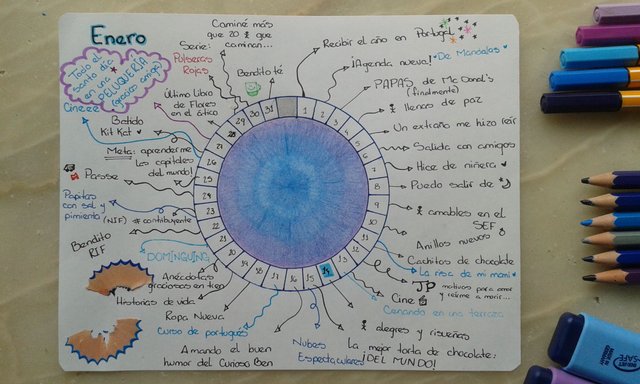 Enero
Todo el
santo día
en una
PELUQUERÍA
(gracias amiga)
Caminé más
que 20 que
caminan...
Serie:
Pulseras
Rojas
Bendito té
Último Libro
de Flores
en el ático
Cineee
Batido
Kit Kat
Meta: aprenderme
las capitales
del mundo!
Passse
Papitas
con sal y
pimienta
(NIF) #contribuyente
Bendito
RIF
DOMINGUING
Anécdotas
graciosas en tren
Historias de vida
Ropa Nueva
Curso de portugués
Amando el buen
humor del Curioso Ben
Nubes
Espectaculares
La mejor torta de chocolate:
¡DEL MUNDO!
alegres y risueñas
Cenando en una terraza
Cine
JP motivos para amar
y reirme a morir...
La risa de mi mami
Cachitos de chocolate
Anillos nuevos
amables en el
SEF
Puedo salir de
Hice de niñera
Salida con amigos
Un extraño me hizo reír
llenos de paz
PAPAS de Mc Donal's
(finalmente)
¡Agenda nueva! De Mandalas
Recibir el año en Portugal
1
2
3
4
5
6
7
8
9
10
11
12
13
14
15
16
17
18
19
20
21
22
23
24
25
26
27
28
29
30
31